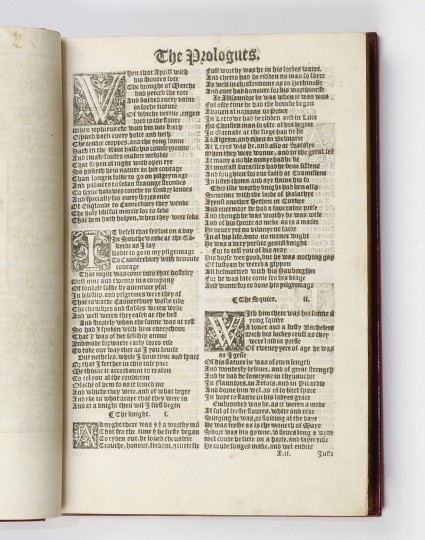 The Prologues.
When that Aprill with
his shoures sote
The drought of Marche
had perced the rote
And bathed every vayne
in soche licoure
Of whiche vertue, engendred is the floure
When zephirus eke with his sote breth
Espired hath every holte and heth
The tender croppes, and the yong sonne
Hath in the Ram halfe his course yronne
And smale foules maken melodie
That slepen al night with open eye
So pricketh hem nature in her courage
Than longen folke to go on pilgrymage
And palmers to seken straunge strondes
To serve halowes couthe in sondry londes
And specially fro every shyres ende
Of Englonde to Canterbury they wende
The holy blisful martir for to seke
That hem hath holpen, when they were seke.
It befell that season on a day
In Southwerke at the Tabarde as I lay
Redie to goen my pilgrimage
To Canterbury with devoute
courage
That night was come into that hostelry
Well nine and twenty in a company
Of sondrie folke by aventure yfal
In felaship, and pilgrimes were they al
That towarde Canterbury wolde ride
The chambres and stables weren wyde
And well weren they eased at the best
And shortely when the sonne was at rest
So had I spoken with hem everychone
That I was of her felaship anone
And made forwarde early for to rise
To take our way there as I you devise
But netheles, while I have time and space
Or that I ferther in this tale pace
Me thinketh it accordaunt to reason
To tell you all the condicion
Of eche of hem so as it semed me
And whiche they were, and of what degre
And eke in what araye that they were in
And at a knight then wil I first begin
The knight. i.
A knyght there was & that a worthy man
That fro the time that he first began
To ryden out, he loved chevalrie
Trouthe, honour, fredom, & curtesie
Full worthy was he in his lordes warre
And therto had he ridden no man so farre
As well in christendome as in Hethnesse
And ever had honoure for his worthinesse
At Alisaundre he was when it was won
Full ofte time he had the borde begon
Aboven al nacions in Pruce
In Lettowe had he ridden, and in Luce
No Christen man so ofte of his degree
In Garnade at the siege had he be
At Leyes was he, and also at Satalye
When they were wonne, and in the great see
At many a noble armye had he be
At mortall batailes had he bene fiftene
And foughten for our faith at Tramissene
In listes thries and aye slaine his fo
This ilke worthy knight had ben also
Somtime with the lorde of Palathye
Ayenst another Hethen in Turkye
And evermore he had a soveraine prise
And though he was worthy he was wise
And of his sporte as meke as is a maide
He never yet no vilanye ne saide
In al his life, unto no maner wight
He was a very perfite gentil knight
For to tell you of his aray
His horse were good, but he was nothing gay
Of fustyan he wered a gippon
All besmottred with his Haubergion
For he was late come fro his viage
And wente for to done his pilgrimage
The Squier. ii.
With him there was his sonne a
yong squire
A lover and a lusty Bacheler
With his lockes crull as they
were laid in presse
Of twenty yere of age he was
as I gesse
Of his stature he was of even length
And wonderly deliver, and of great strength
And he had be somtyme in chivauchie
In Flaundres, in Artois, and in Picardie
And borne him wel, as of so litel space
In hope to stande in his ladyes grace
Embrouded was he, as it were a mede
Al ful of freshe floures, white and rede
Singing he was, or floiting al the daye
He was freshe as is the moneth of Maye
Short was his gowne, with sleves long & wyde
Wel coude he sitte on a horse, and fayre ride
He coude songes make, and wel endite
A.ii. Juste